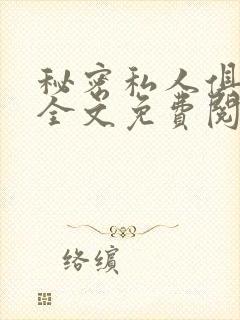 秘密私人俱
全文免费阅
络缤